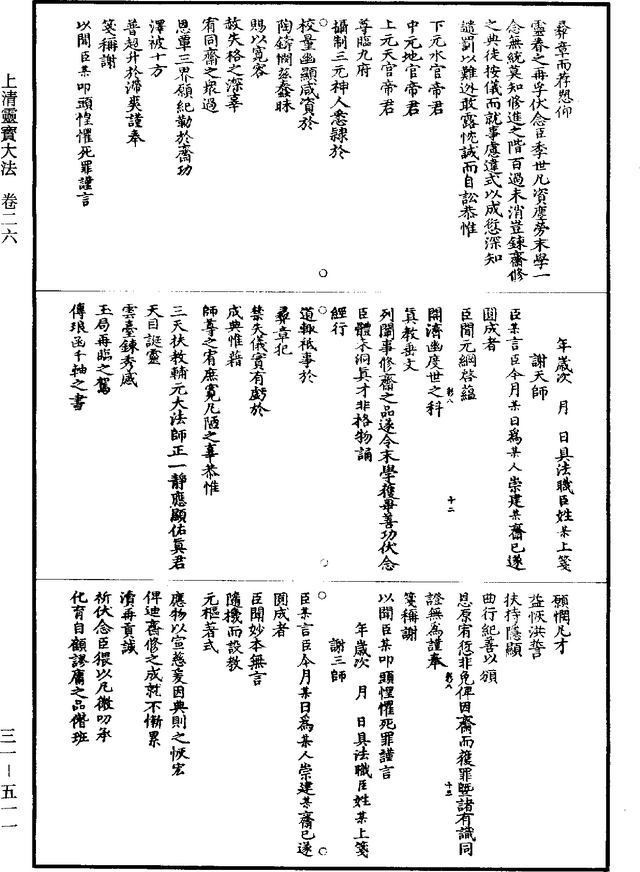 上清靈寶大法 卷二六
三一－五一一
彝章而荐懇仰
靈春之再孚伏念臣季世凡資塵勞末學一
念無統莫知修進之階百過未消豈錬齋修
之典徒按儀而就事慮違式以成愆深知
譴罰以難逃敢露忱誠而自訟恭惟
下元水官帝君
中元地官帝君
上元天官帝君
尊臨九府
攝制三元神人悉隸於
校量幽顯咸資於
陶鑄憫茲蠢昧
賜以寬容
赦失格之深辜
宥同齋之衆過
恩覃三界願紀勒於齋功
澤被十方
普超升於滯爽謹奉
箋稱謝
以聞臣某叩頭惶懼死罪謹言
年歲次 月 日具法職臣姓某上箋
謝天師
臣某言臣今月某日爲某人崇建某齋已遂
圓成者
臣聞元綱啓蘊
開濟幽度世之科
真教垂文
列關事修齋之品遂令末學獲畢善功伏念
臣體未洞真才非格物誦
經行
道輒祗事於
彝章犯
禁失儀實有虧於
成典惟藉
師尊之宥庶寬凡陋之辜恭惟
三天扶教輔元大法師正一靜應顯佑真君
天目誕靈
雲臺錬秀感
玉局再臨之駕
傳琅函千軸之書
願憫凡才
益恢洪誓
扶持隱顯
曲行紀善以頒
恩原宥愆非免俾因齋而獲罪曁諸有識同
證無爲謹奉
箋稱謝
以聞臣某叩頭惶懼死罪謹言
年歲次 月 日具法職臣姓某上箋
謝三師
臣某言臣今月某日爲某人崇建某齋已遂
圓成者
臣聞妙本無言
隨機而設教
元樞著式
應物以宣慈爰因典則之恢宏
俾迪齋修之成就不慚累
瀆再貢誠
祈伏念臣猥以凡微叨承
化育自顧謬庸之品僭班